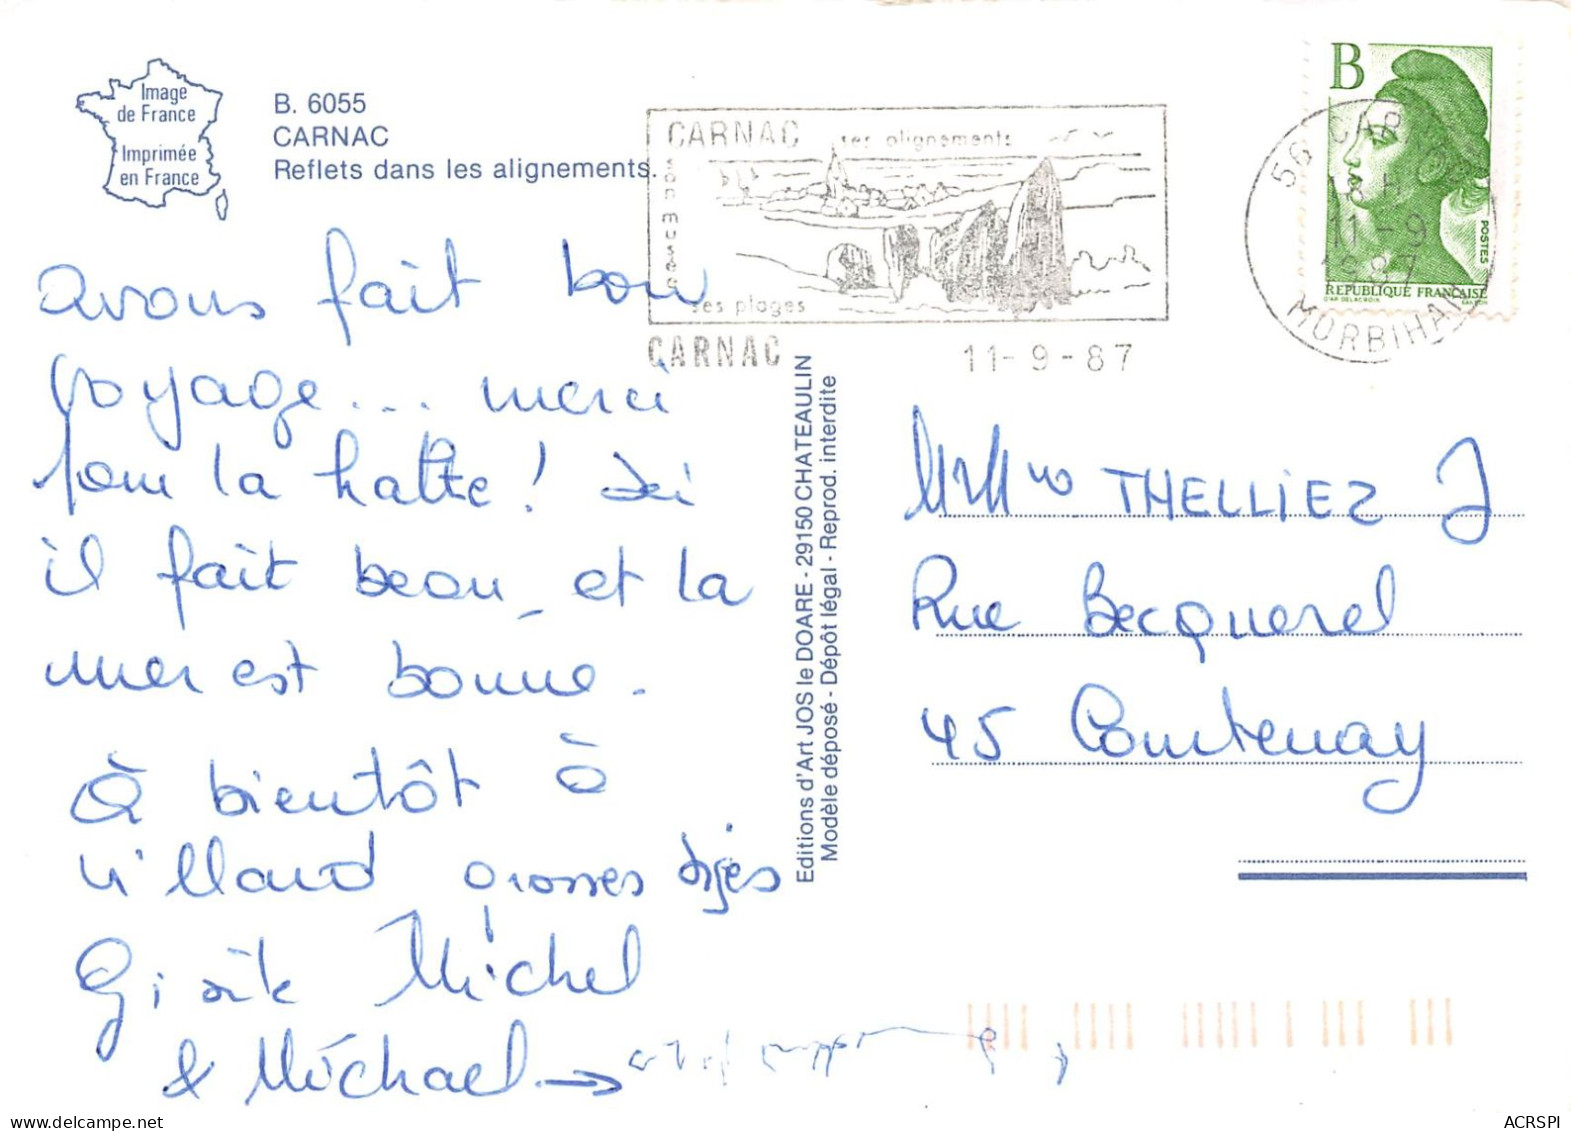 Image
de France
Imprimée
en France
B. 6055
CARNAC
Reflets dans les alignements.
CARNAC ses alignements
son musée
ses plages
CARNAC 11-9-87
B
POSTES
REPUBLIQUE FRANÇAISE
D'AP. DELACROIX GANDON
56 CARNAC
18 H
11-9
1987
MORBIHAN
avons fait bon
voyage... merci
pour la halte! Ici
il fait beau, et la
mer est bonne.
À bientôt à
grosses bises
Gisèle Michel
& Michael
Editions d'Art JOS le DOARE - 29150 CHATEAULIN
Modèle déposé - Dépôt légal - Reprod. interdite
THELLIEZ J
Rue Becquerel
45 Courtenay
ACRSPI